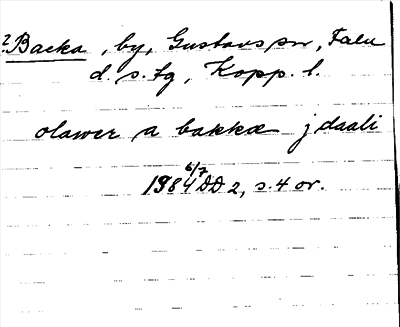 ? Backa, by, Gustavs sn, Falu
d. s. tg, Kopp. l.
olawer a bakkæ j daali
1384 6/7 DD 2, s. 4 or.